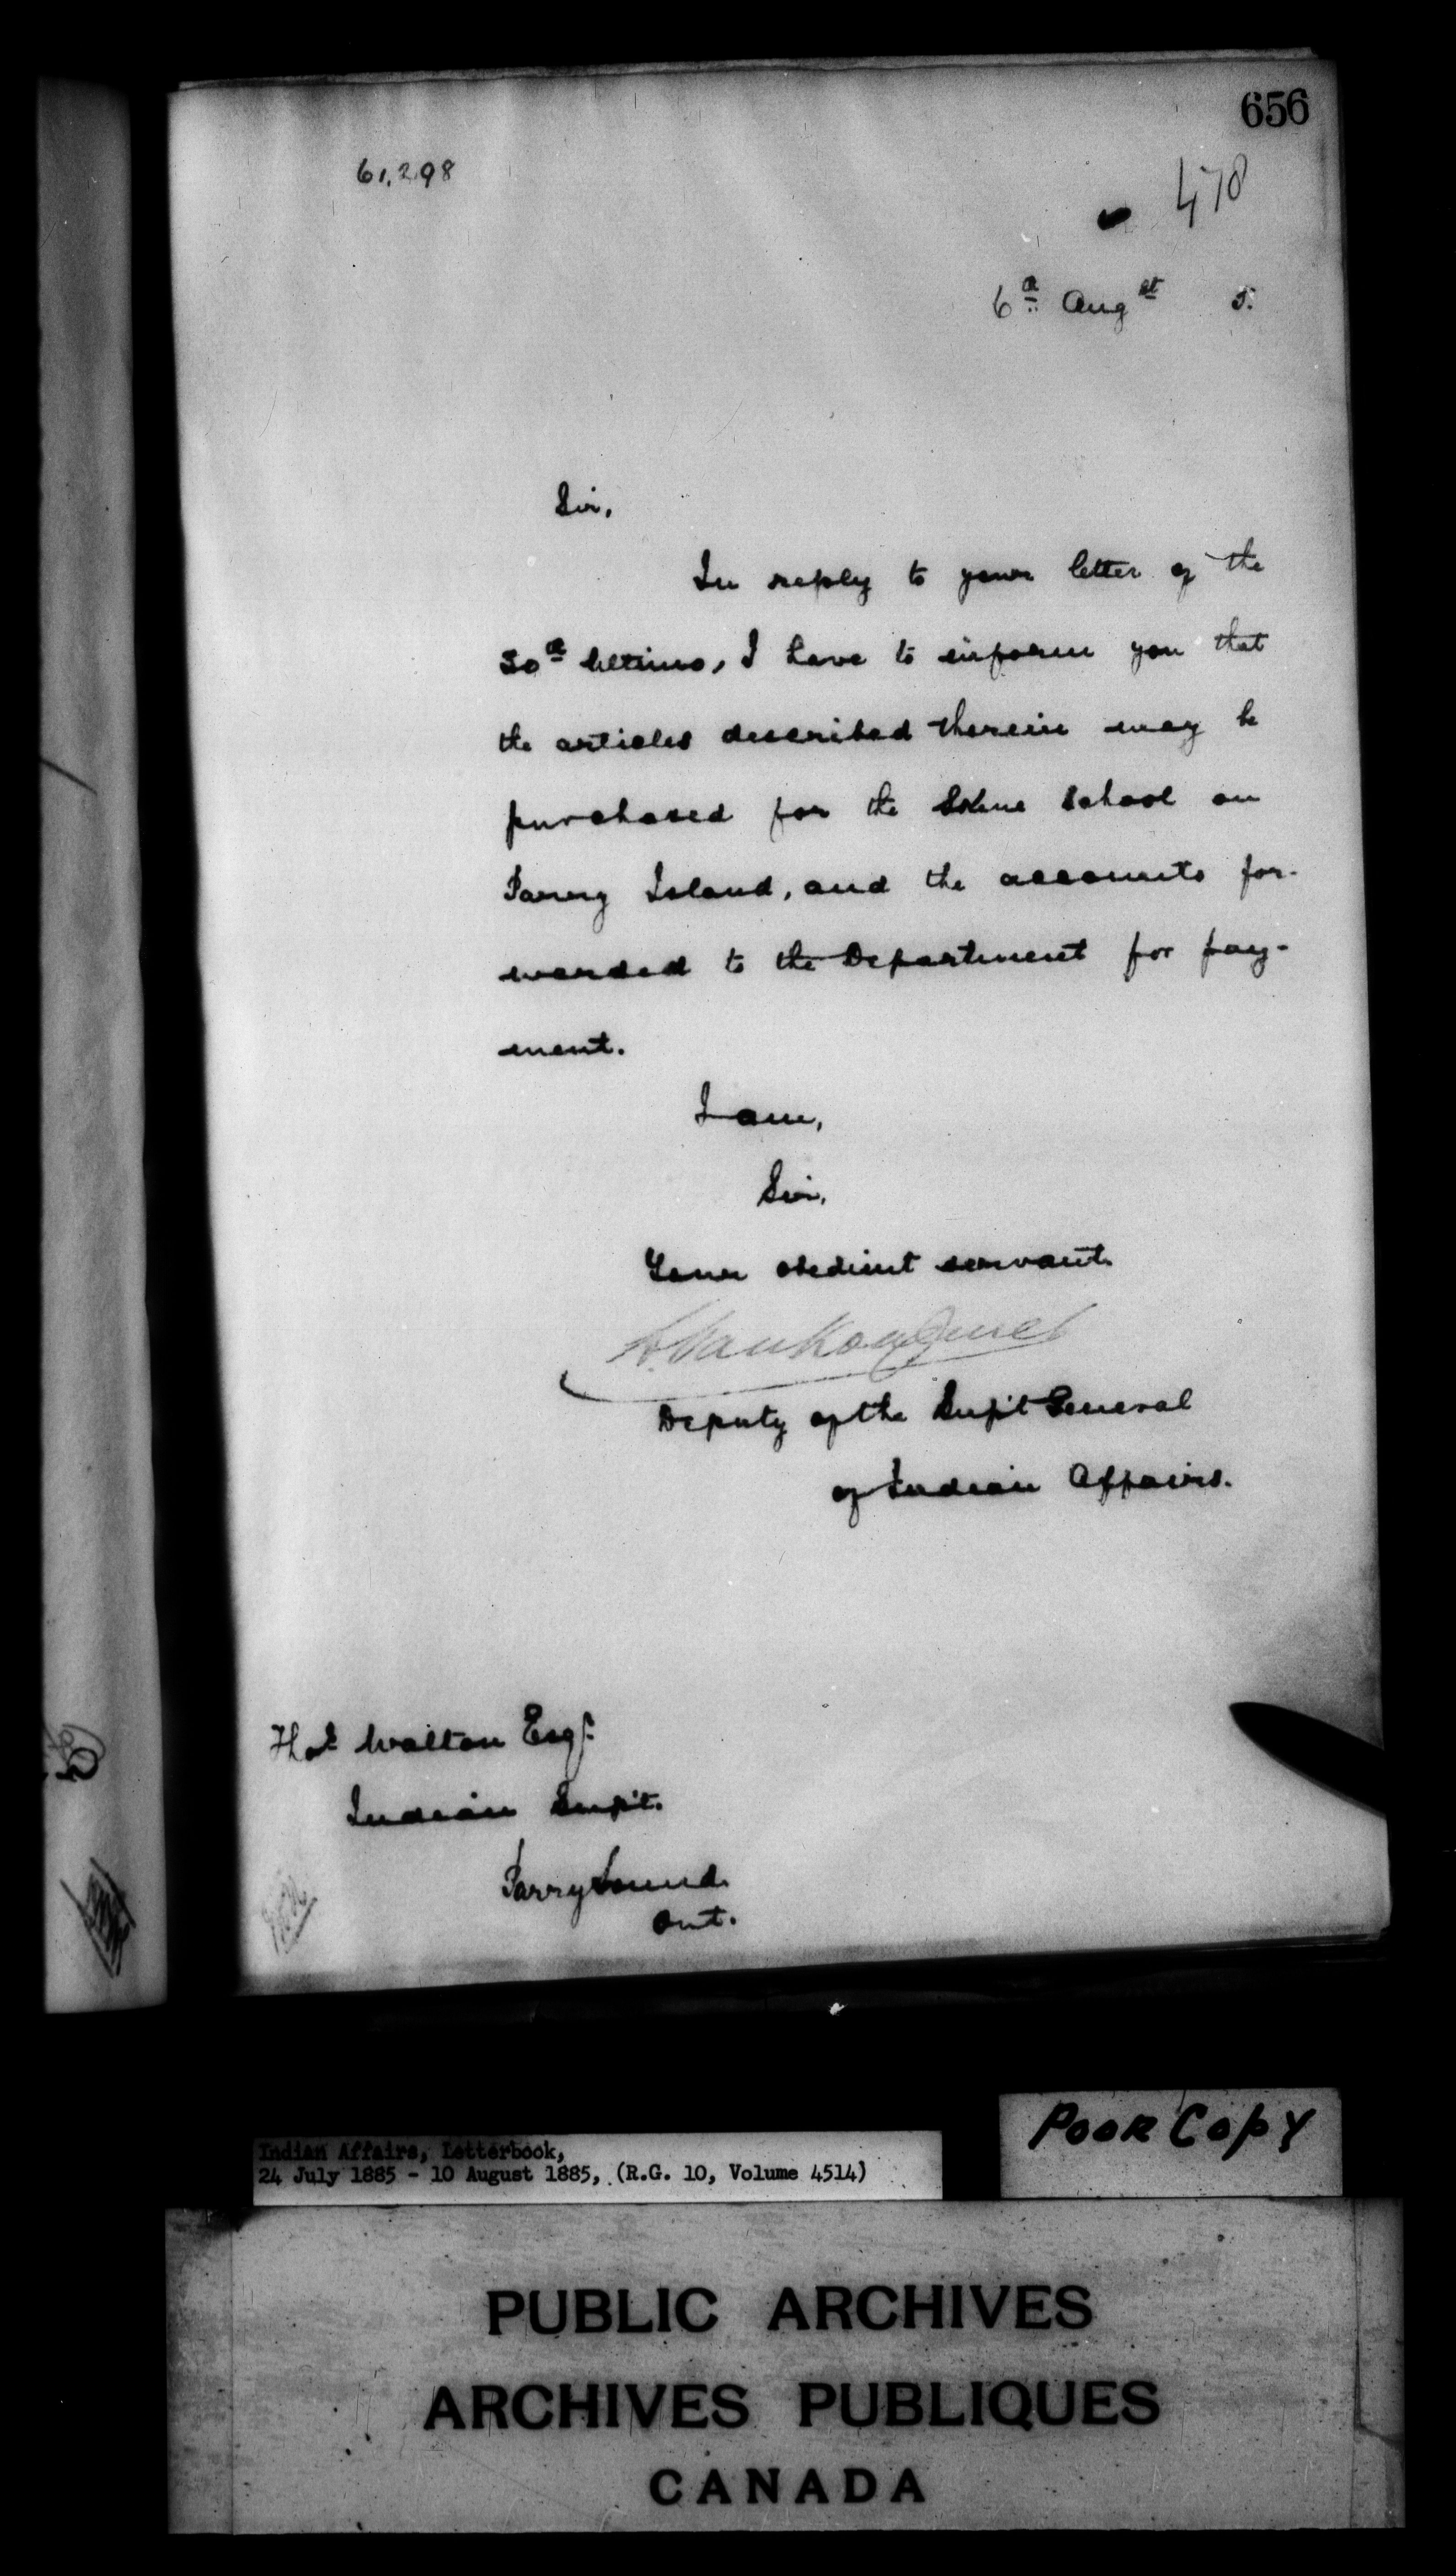 656
61,298
478
6th Augst 5.
Sir,
In reply to your letter of the
30th Ultimo, I have to inform you that
the articles described therein may be
purchased for the School on
Parry Island, and the accounts for-
warded to the Department for pay-
ment.
I am,
Sir,
Your obedient servant
L. VanKoughnet
Deputy of the Supt General
of Indian Affairs.
Thos Walton Esqr
Indian Supt.
Parry Sound
Ont.
Poor Copy
Indian Affairs, Letterbook,
24 July 1885 - 10 August 1885, (R.G. 10, Volume 4514)
PUBLIC ARCHIVES
ARCHIVES PUBLIQUES
CANADA